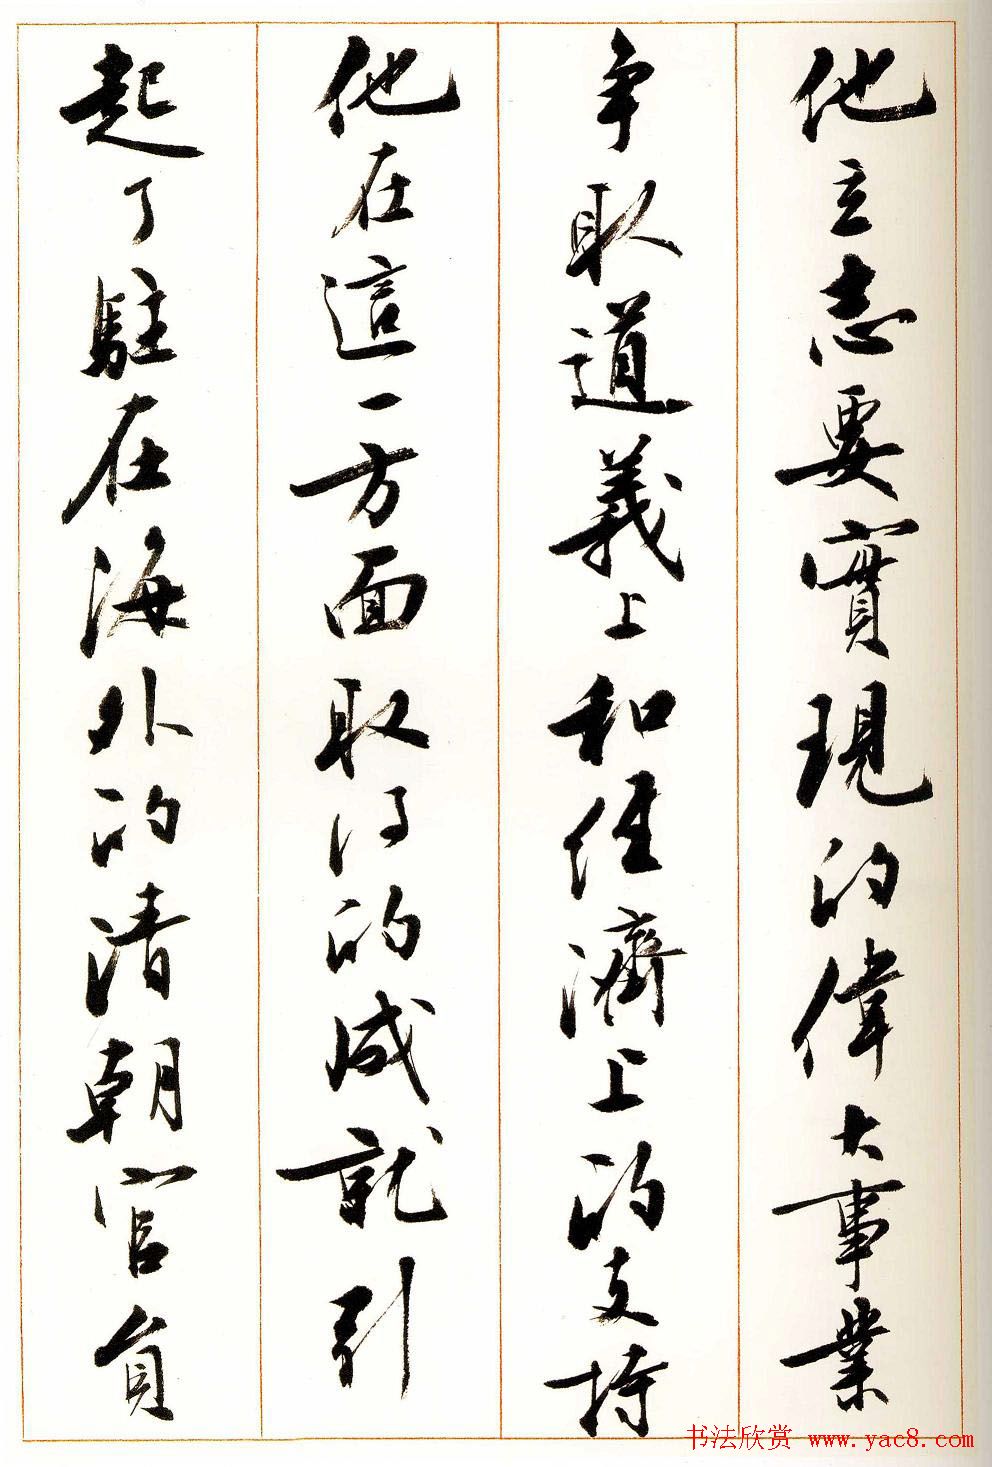 他立志要實現的偉大事業
爭取道義上和經濟上的支持
他在這一方面取得的成就引
起了駐在海外的清朝官員
书法欣赏 www.yac8.com